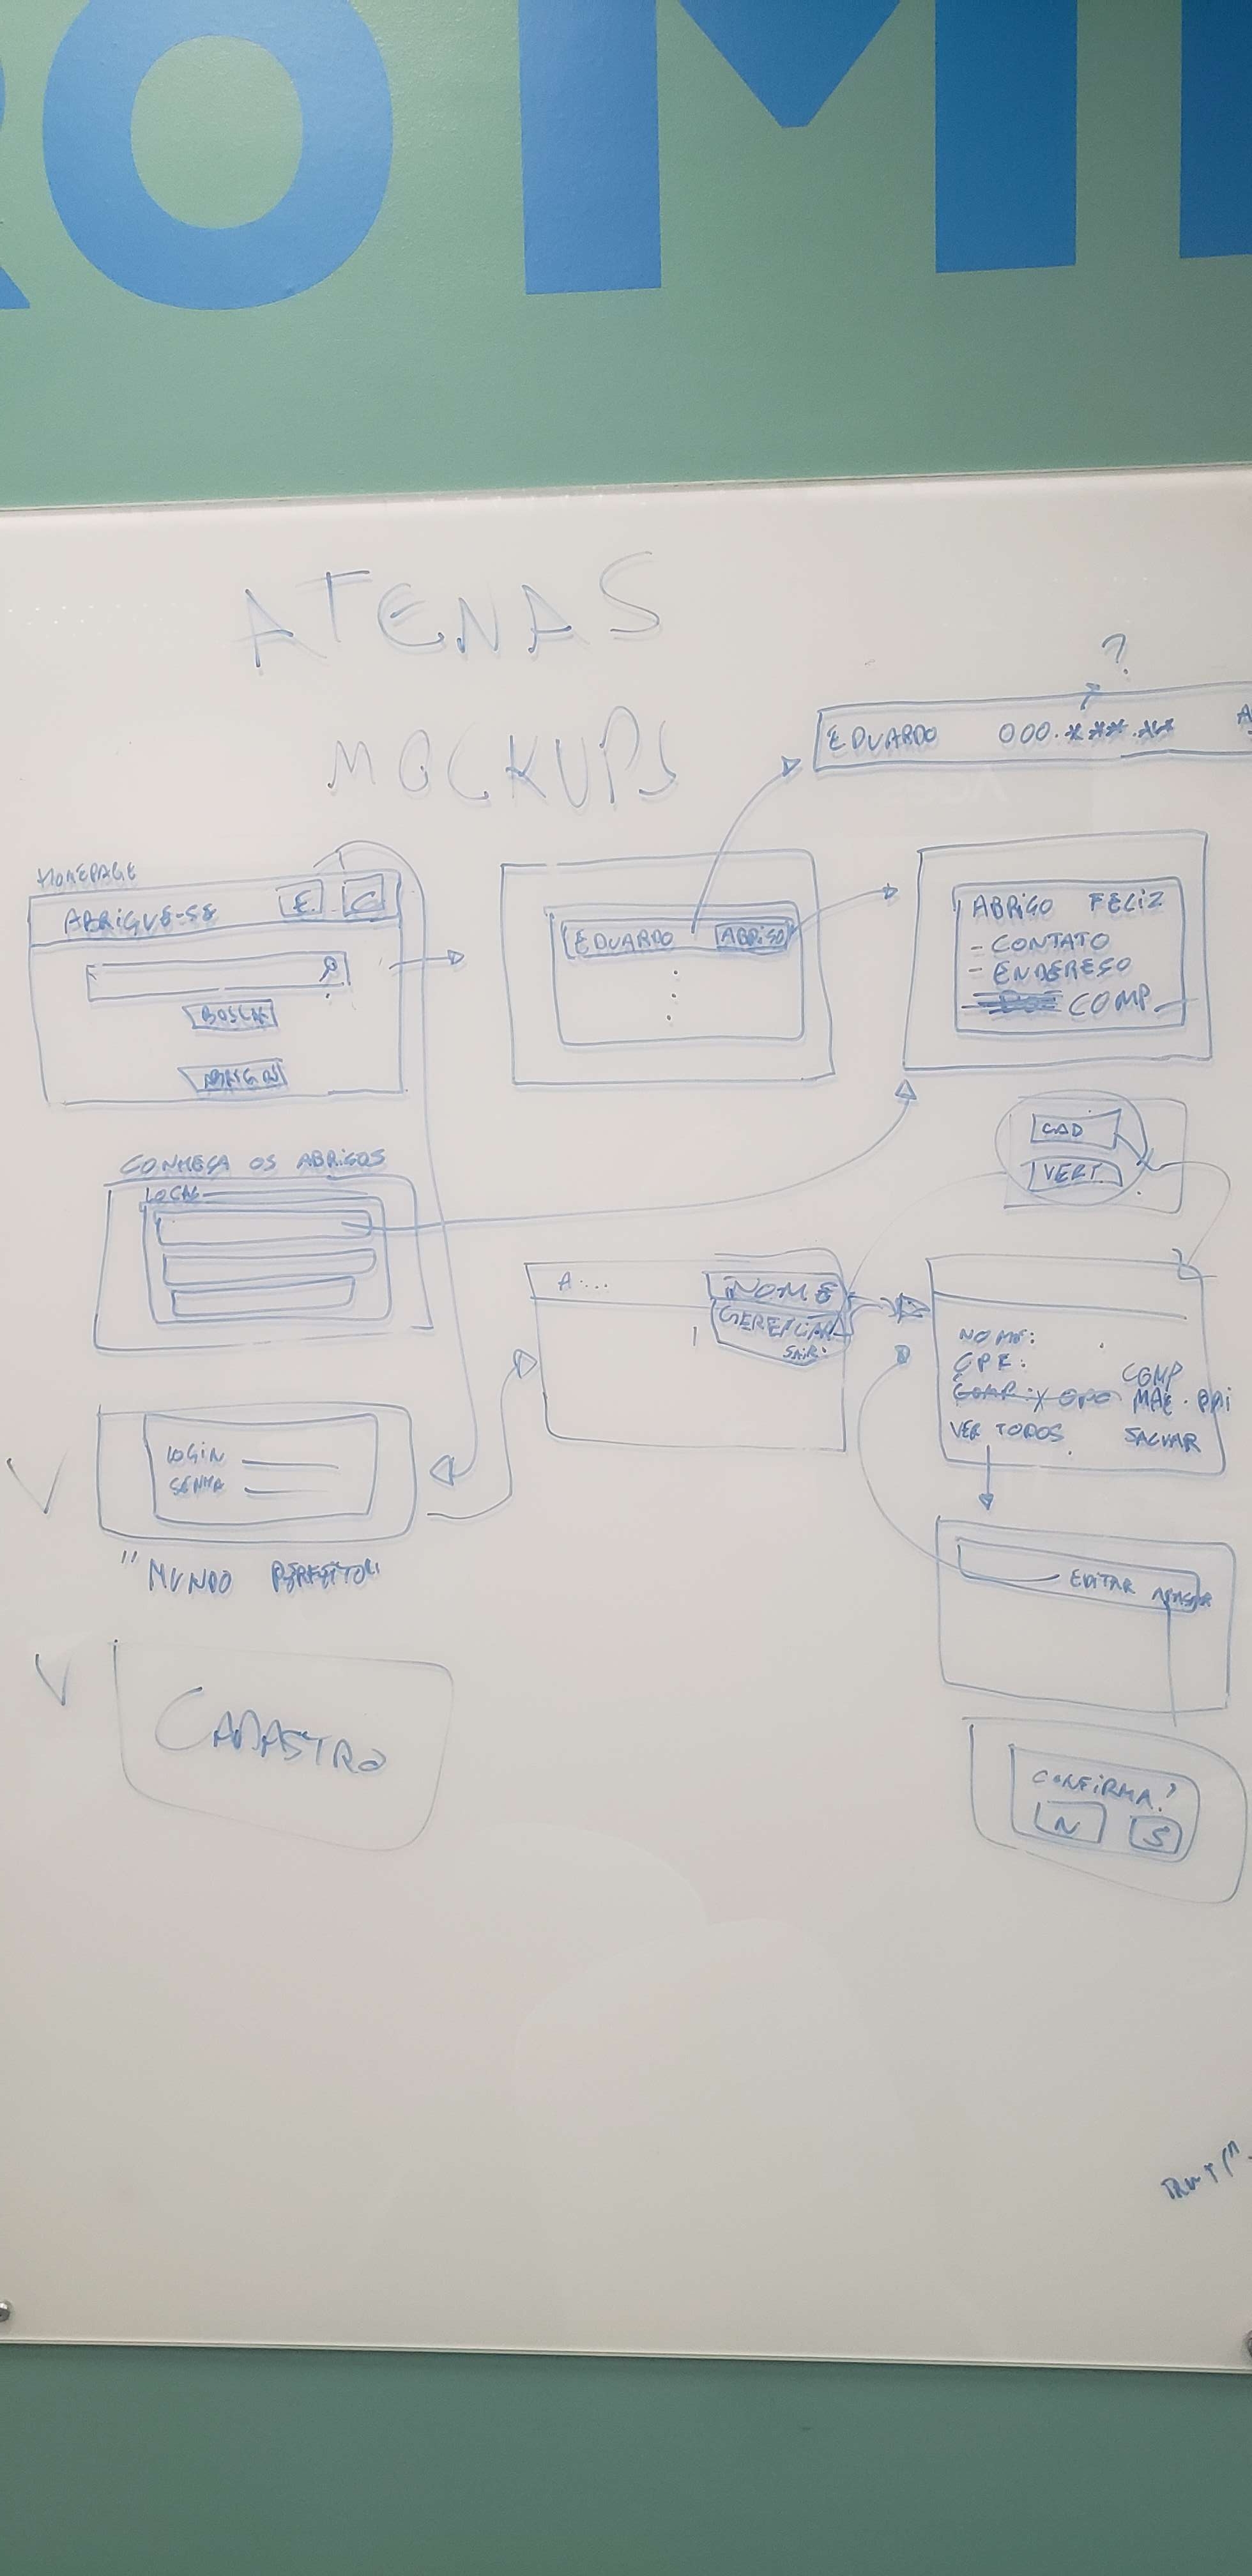 ATENAS
MOCKUPS
?
EDUARDO 000.***.**
HOMEPAGE
ABRIGUE-SE E C
BUSCAR
EDUARDO ABRIGO
ABRIGO FELIZ
- CONTATO
- ENDEREÇO
COMP
CONHEÇA OS ABRIGOS
LOCAL
CAD
VERT.
A....
NOME
GERENCIAR
SAIR
NOME:
CPF:
COMP
MAE . PAI
VER TODOS SALVAR
LOGIN
SENHA
"MUNDO PERFEITO"
EDITAR APAGAR
CADASTRO
CONFIRMA?
N S